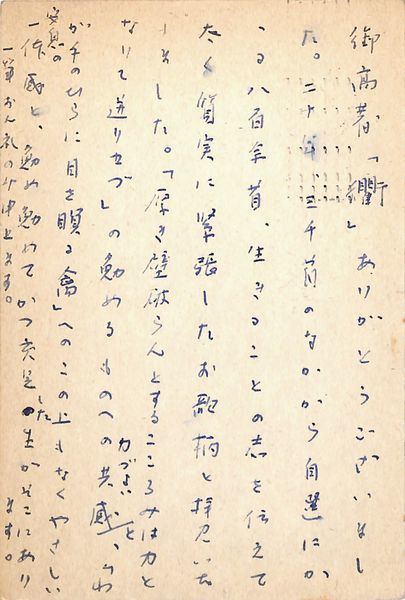 御高著「衢」ありがとうございまし
た。二十年、三千首のなかから自選にか
ゝる八百余首、生きることの志を伝えて
太く質実に緊張したお歌柄と拝見いた
しました。「厚き壁破らんとするこころみは力と
なりて送りつぐ」の勁めるものへの力づよい共感と、
が手のひらに目を瞑る禽」へのこの上もなくやさしい
安息の
一作風と、勁め勁めてかつ充足した生がそこにあり
ます。
一筆おん礼のみ申上ます。